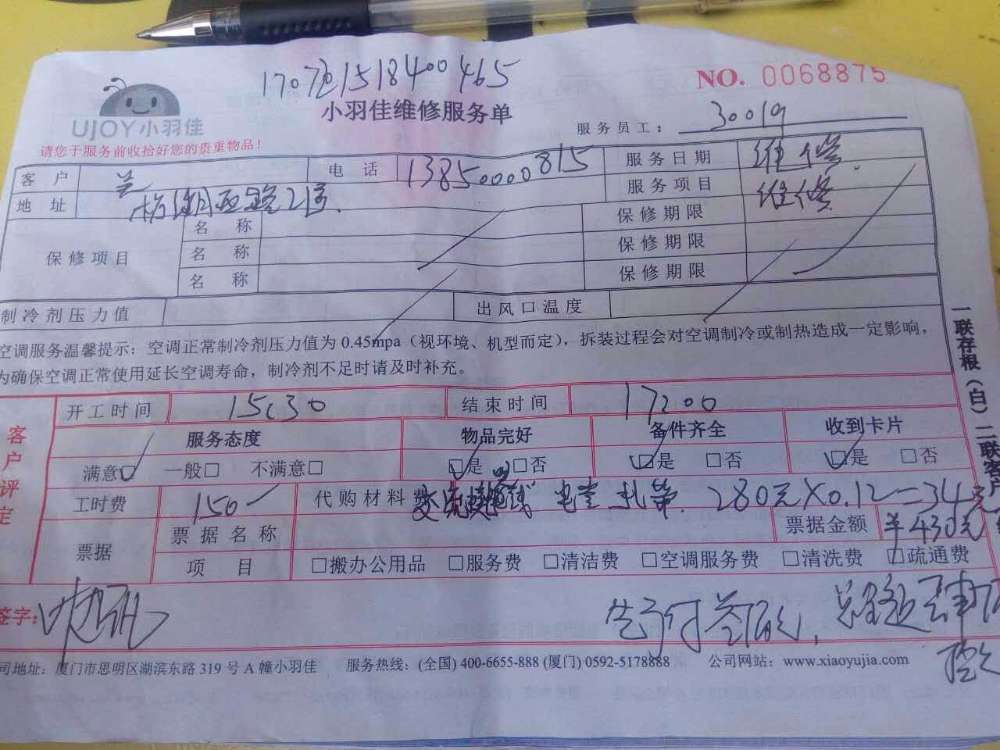 170725151840 0465
NO. 0068875
UJOY小羽佳
小羽佳维修服务单
服务员工: 30019
请您于服务前收拾好您的贵重物品!
客户 兰 电话 13850000815 服务日期 维修
地址 湖西路2号 服务项目 维修
保修项目 名称 保修期限
名称 保修期限
名称 保修期限
制冷剂压力值 出风口温度
空调服务温馨提示: 空调正常制冷剂压力值为 0.45mpa (视环境、机型而定), 拆装过程会对空调制冷或制热造成一定影响,
为确保空调正常使用延长空调寿命, 制冷剂不足时请及时补充。
一联存根(白) 二联客户
客户评定
开工时间 15:30 结束时间 17:00
服务态度 物品完好 备件齐全 收到卡片
满意□ 一般□ 不满意□ □是 □否 □是 □否 □是 □否
工时费 150 代购材料费 280元×0.12=34元
票据 票据名称 票据金额 ¥430元
项目 □搬办公用品 □服务费 □清洁费 □空调服务费 □清洗费 □疏通费
签字:
司地址: 厦门市思明区湖滨东路 319 号 A 幢小羽佳 服务热线: (全国) 400-6655-888 (厦门) 0592-5178888 公司网站: www.xiaoyujia.com